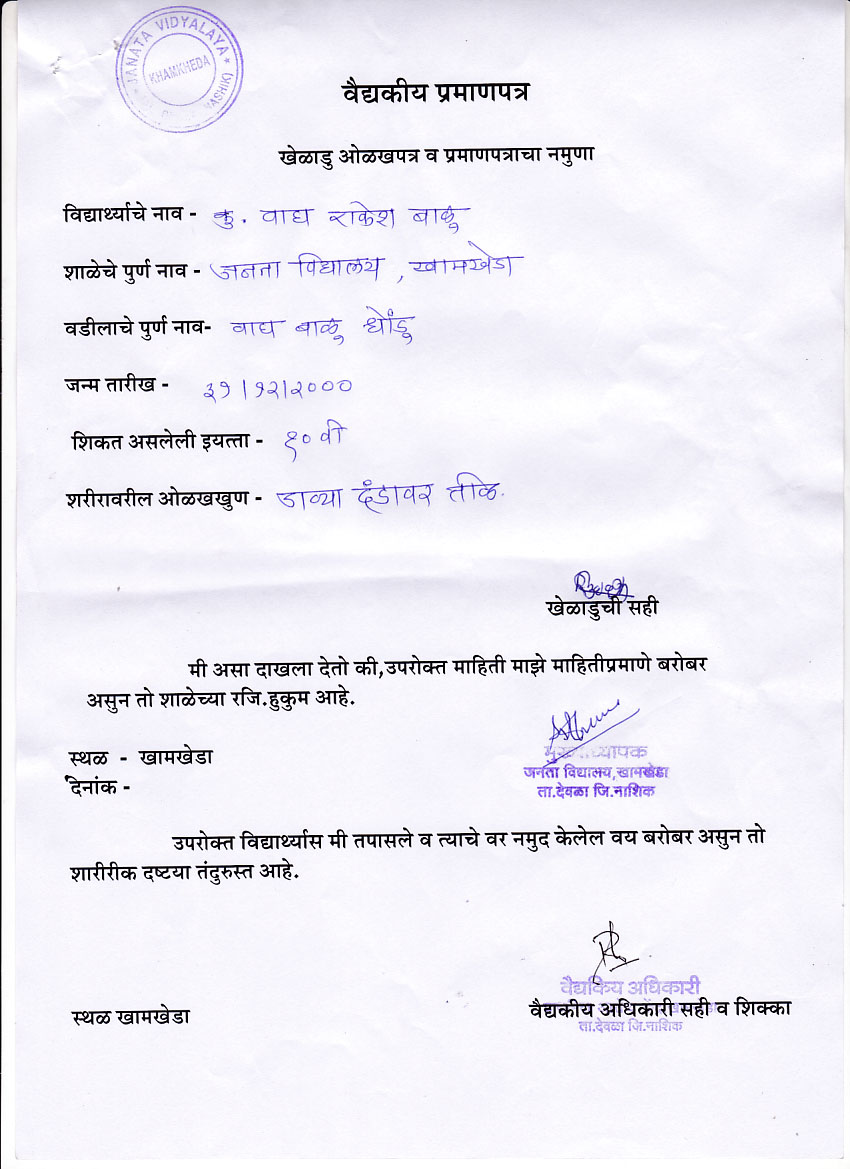 JANATA VIDYALAYA
KHAMKHEDA
NASHIK)
वैद्यकीय प्रमाणपत्र
खेळाडु ओळखपत्र व प्रमाणपत्राचा नमुणा
विद्यार्थ्याचे नाव - कु. वाघ राकेश बाळू
शाळेचे पुर्ण नाव - जनता विद्यालय , खामखेडा
वडीलाचे पुर्ण नाव- वाघ बाळू धोंडू
जन्म तारीख - ३१।१२।२०००
शिकत असलेली इयत्ता - १० वी
शरीरावरील ओळखखुण - डाव्या दंडावर तीळ.
खेळाडुची सही
मी असा दाखला देतो की,उपरोक्त माहिती माझे माहितीप्रमाणे बरोबर
असुन तो शाळेच्या रजि.हुकुम आहे.
स्थळ - खामखेडा
मुख्याध्यापक
जनता विद्यालय,खामखेडा
दिनांक -
ता.देवळा जि.नाशिक
उपरोक्त विद्यार्थ्यास मी तपासले व त्याचे वर नमुद केलेल वय बरोबर असुन तो
शारीरीक दष्टया तंदुरुस्त आहे.
वैद्यकिय अधिकारी
वैद्यकीय अधिकारी सही व शिक्का
स्थळ खामखेडा
ता.देवळा जि.नाशिक